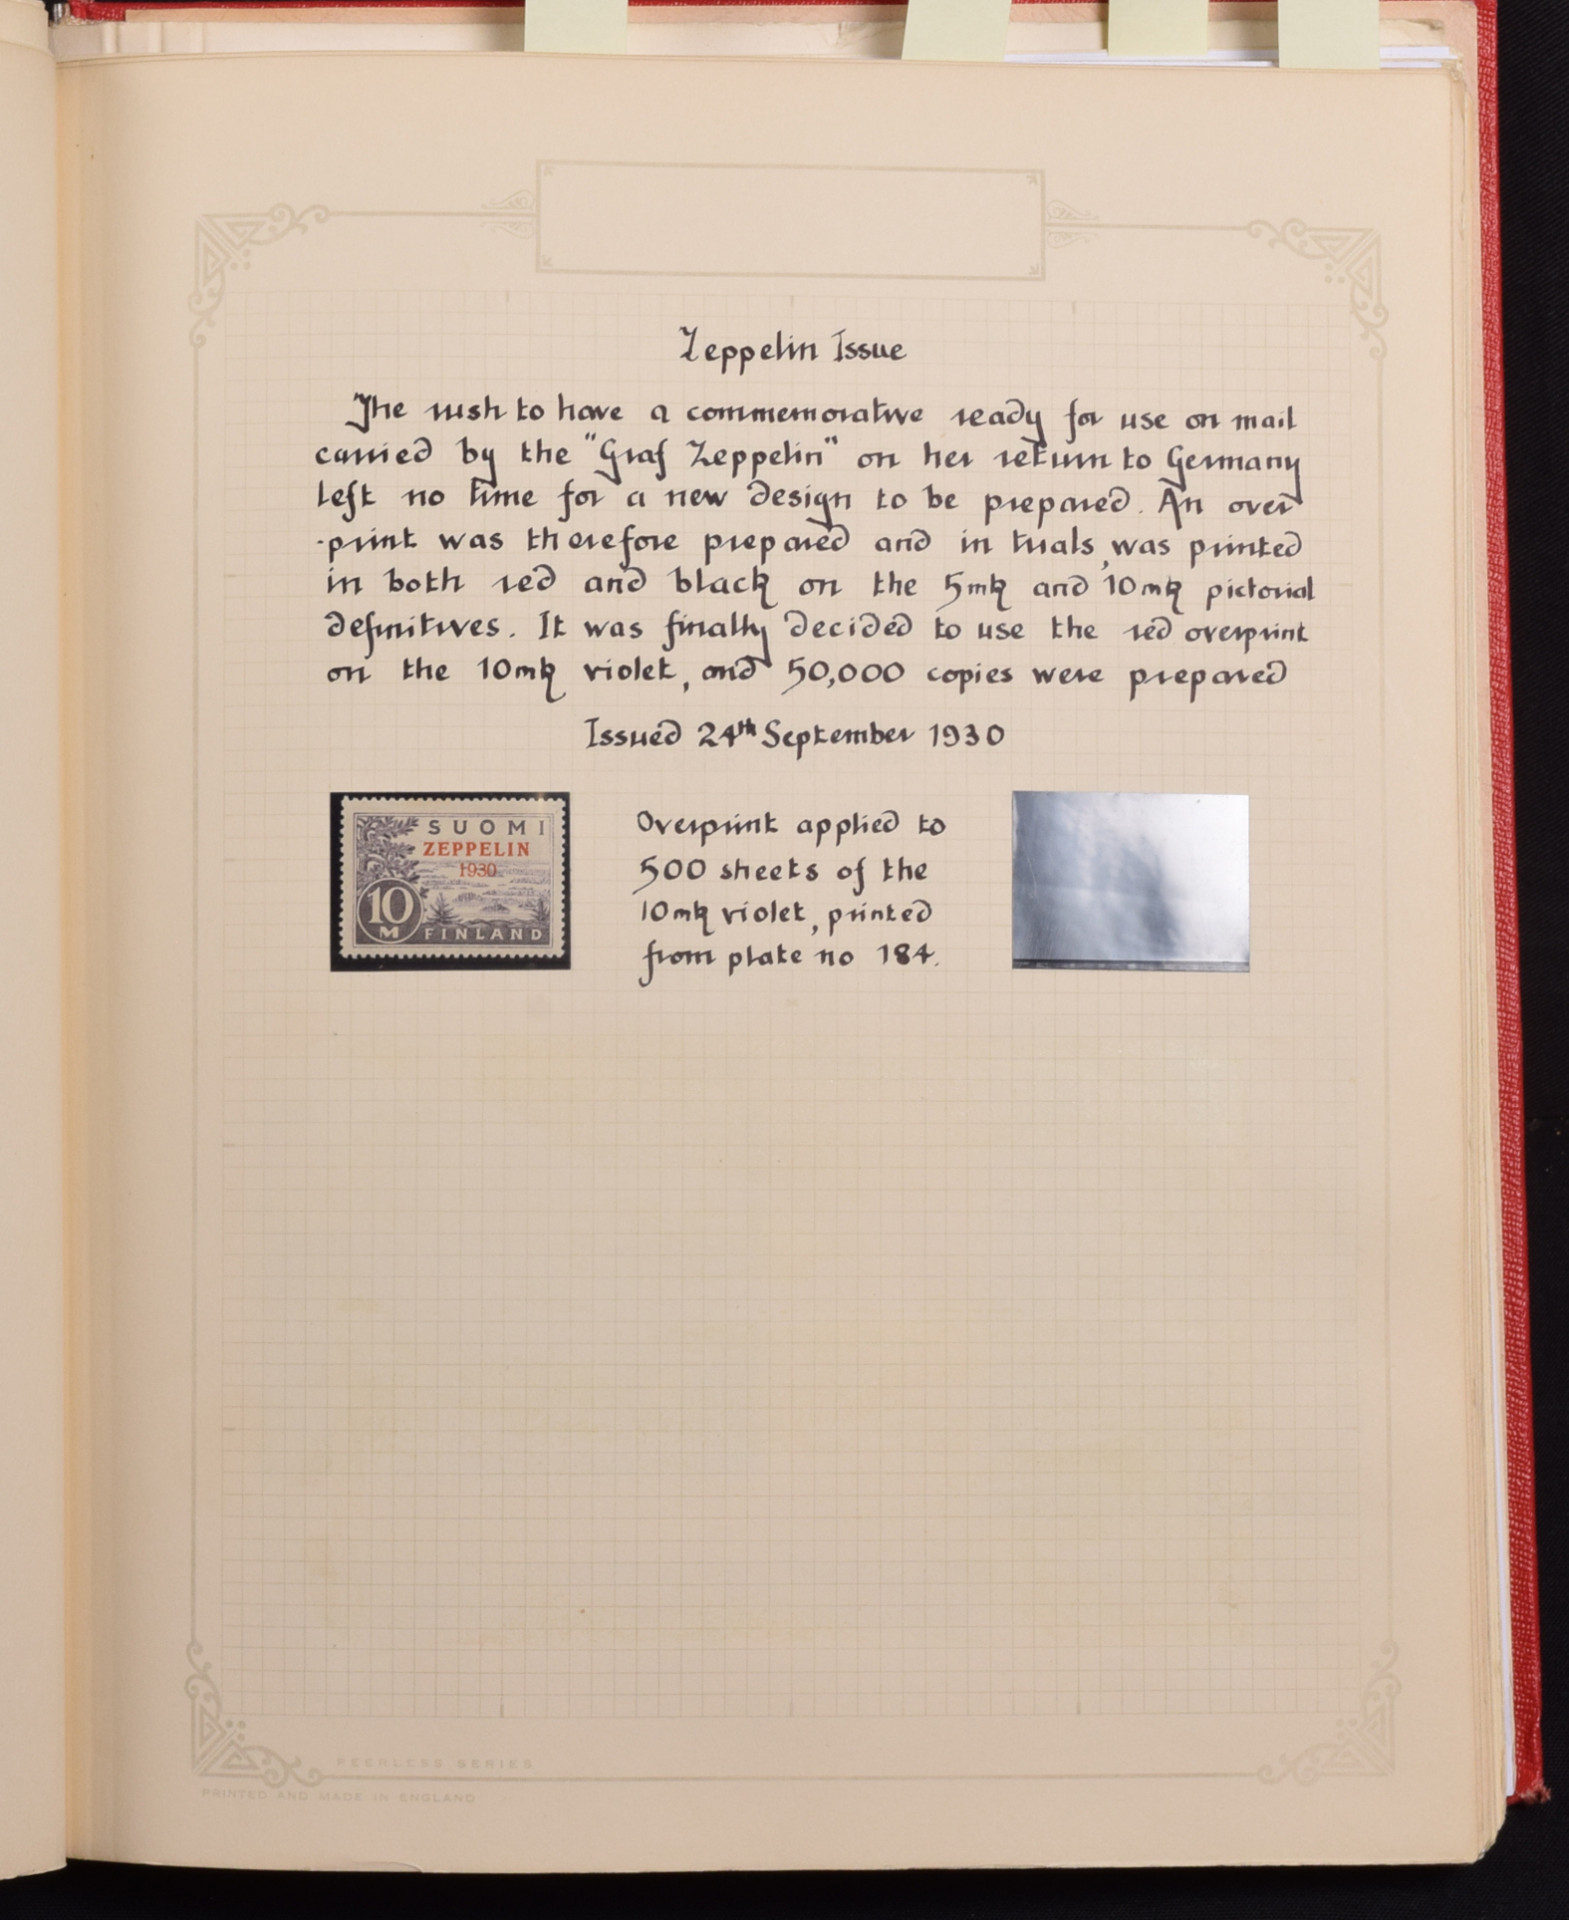 Zeppelin Issue
The rush to have a commemorative ready for use on mail
carried by the "Graf Zeppelin" on her return to Germany
left no time for a new design to be prepared. An over
-print was therefore prepared and in trials, was printed
in both red and black on the 5mk and 10mk pictorial
definitives. It was finally decided to use the red overprint
on the 10mk violet, and 50,000 copies were prepared
Issued 24th September 1930
SUOMI
ZEPPELIN
1930
10
M
FINLAND
Overprint applied to
500 sheets of the
10mk violet, printed
from plate no 184.
PEERLESS SERIES
PRINTED AND MADE IN ENGLAND